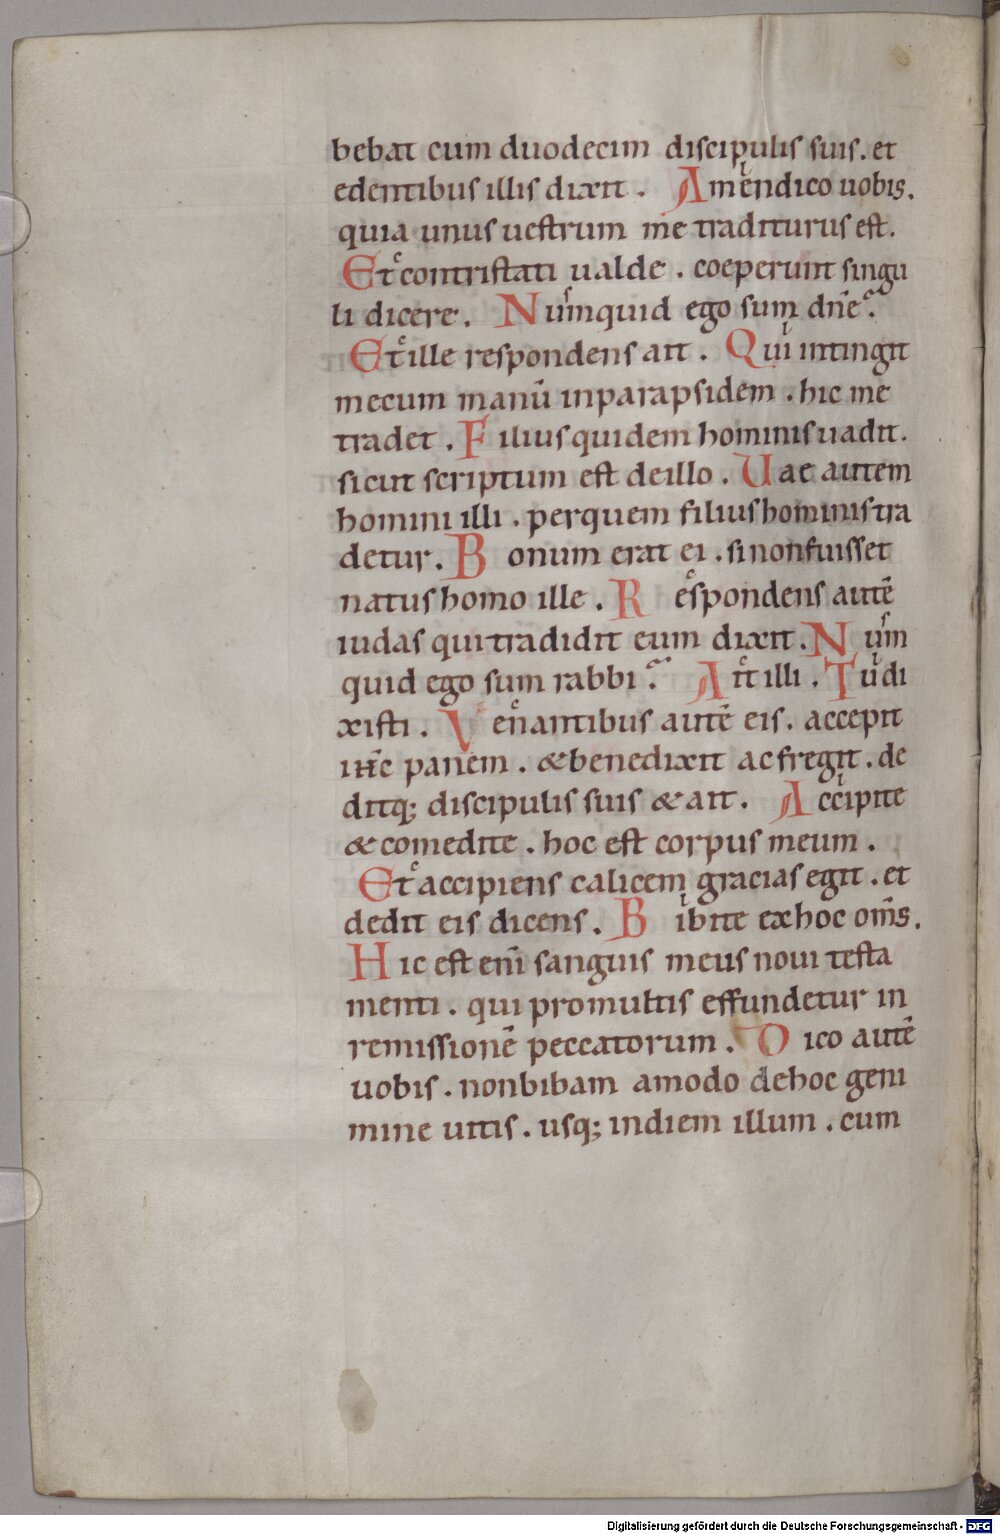 bebat cum duodecim discipulis suis. et
edentibus illis dixit. Amen dico uobis.
quia unus uestrum me traditurus est.
Et contristati ualde. coeperunt singu
li dicere. Numquid ego sum dñe?
Et ille respondens ait. Qui intingit
mecum manū inparapsidem. hic me
tradet. Filius quidem hominis uadit.
sicut scriptum est deillo. Uae autem
homini illi. perquem filius hominis tra
detur. Bonum erat ei. si non fuisset
natus homo ille. Respondens autē
iudas qui tradidit eum dixit. Num
quid ego sum rabbi? Ait illi. Tu di
xisti. Venantibus autē eis. accepit
ihc panem. & benedixit ac fregit. de
ditq; discipulis suis & ait. Accipite
& comedite. hoc est corpus meum.
Et accipiens calicem gracias egit. et
dedit eis dicens. Bibite ex hoc oms̄.
Hic est enī sanguis meus noui testa
menti. qui promultis effundetur in
remissionē peccatorum. Dico autē
uobis. non bibam amodo dehoc geni
mine uitis. usq; indiem illum. cum
Digitalisierung gefördert durch die Deutsche Forschungsgemeinschaft - DFG